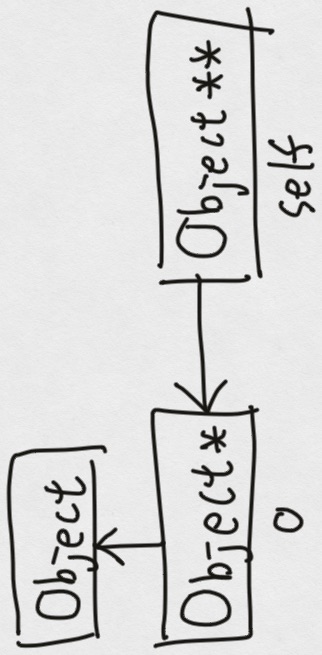 Object
Object*
Object**
o
self